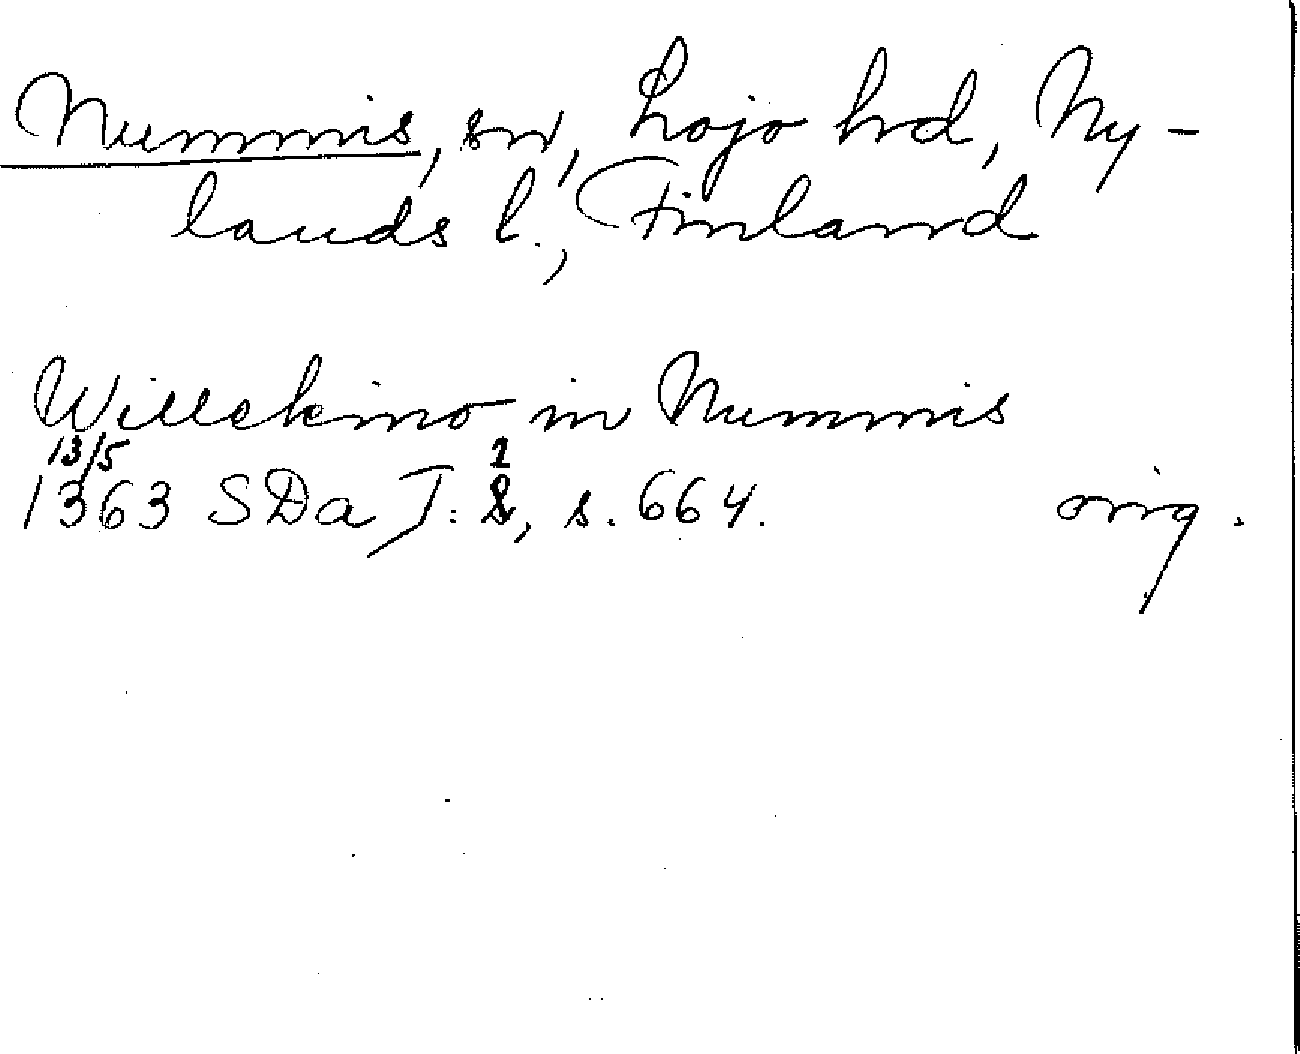 Nummis, sn, Lojo hd, Ny-
lands l., Finland
Willekino in Nummis
13/5
1363 SDa I: 2, s. 664. orig.